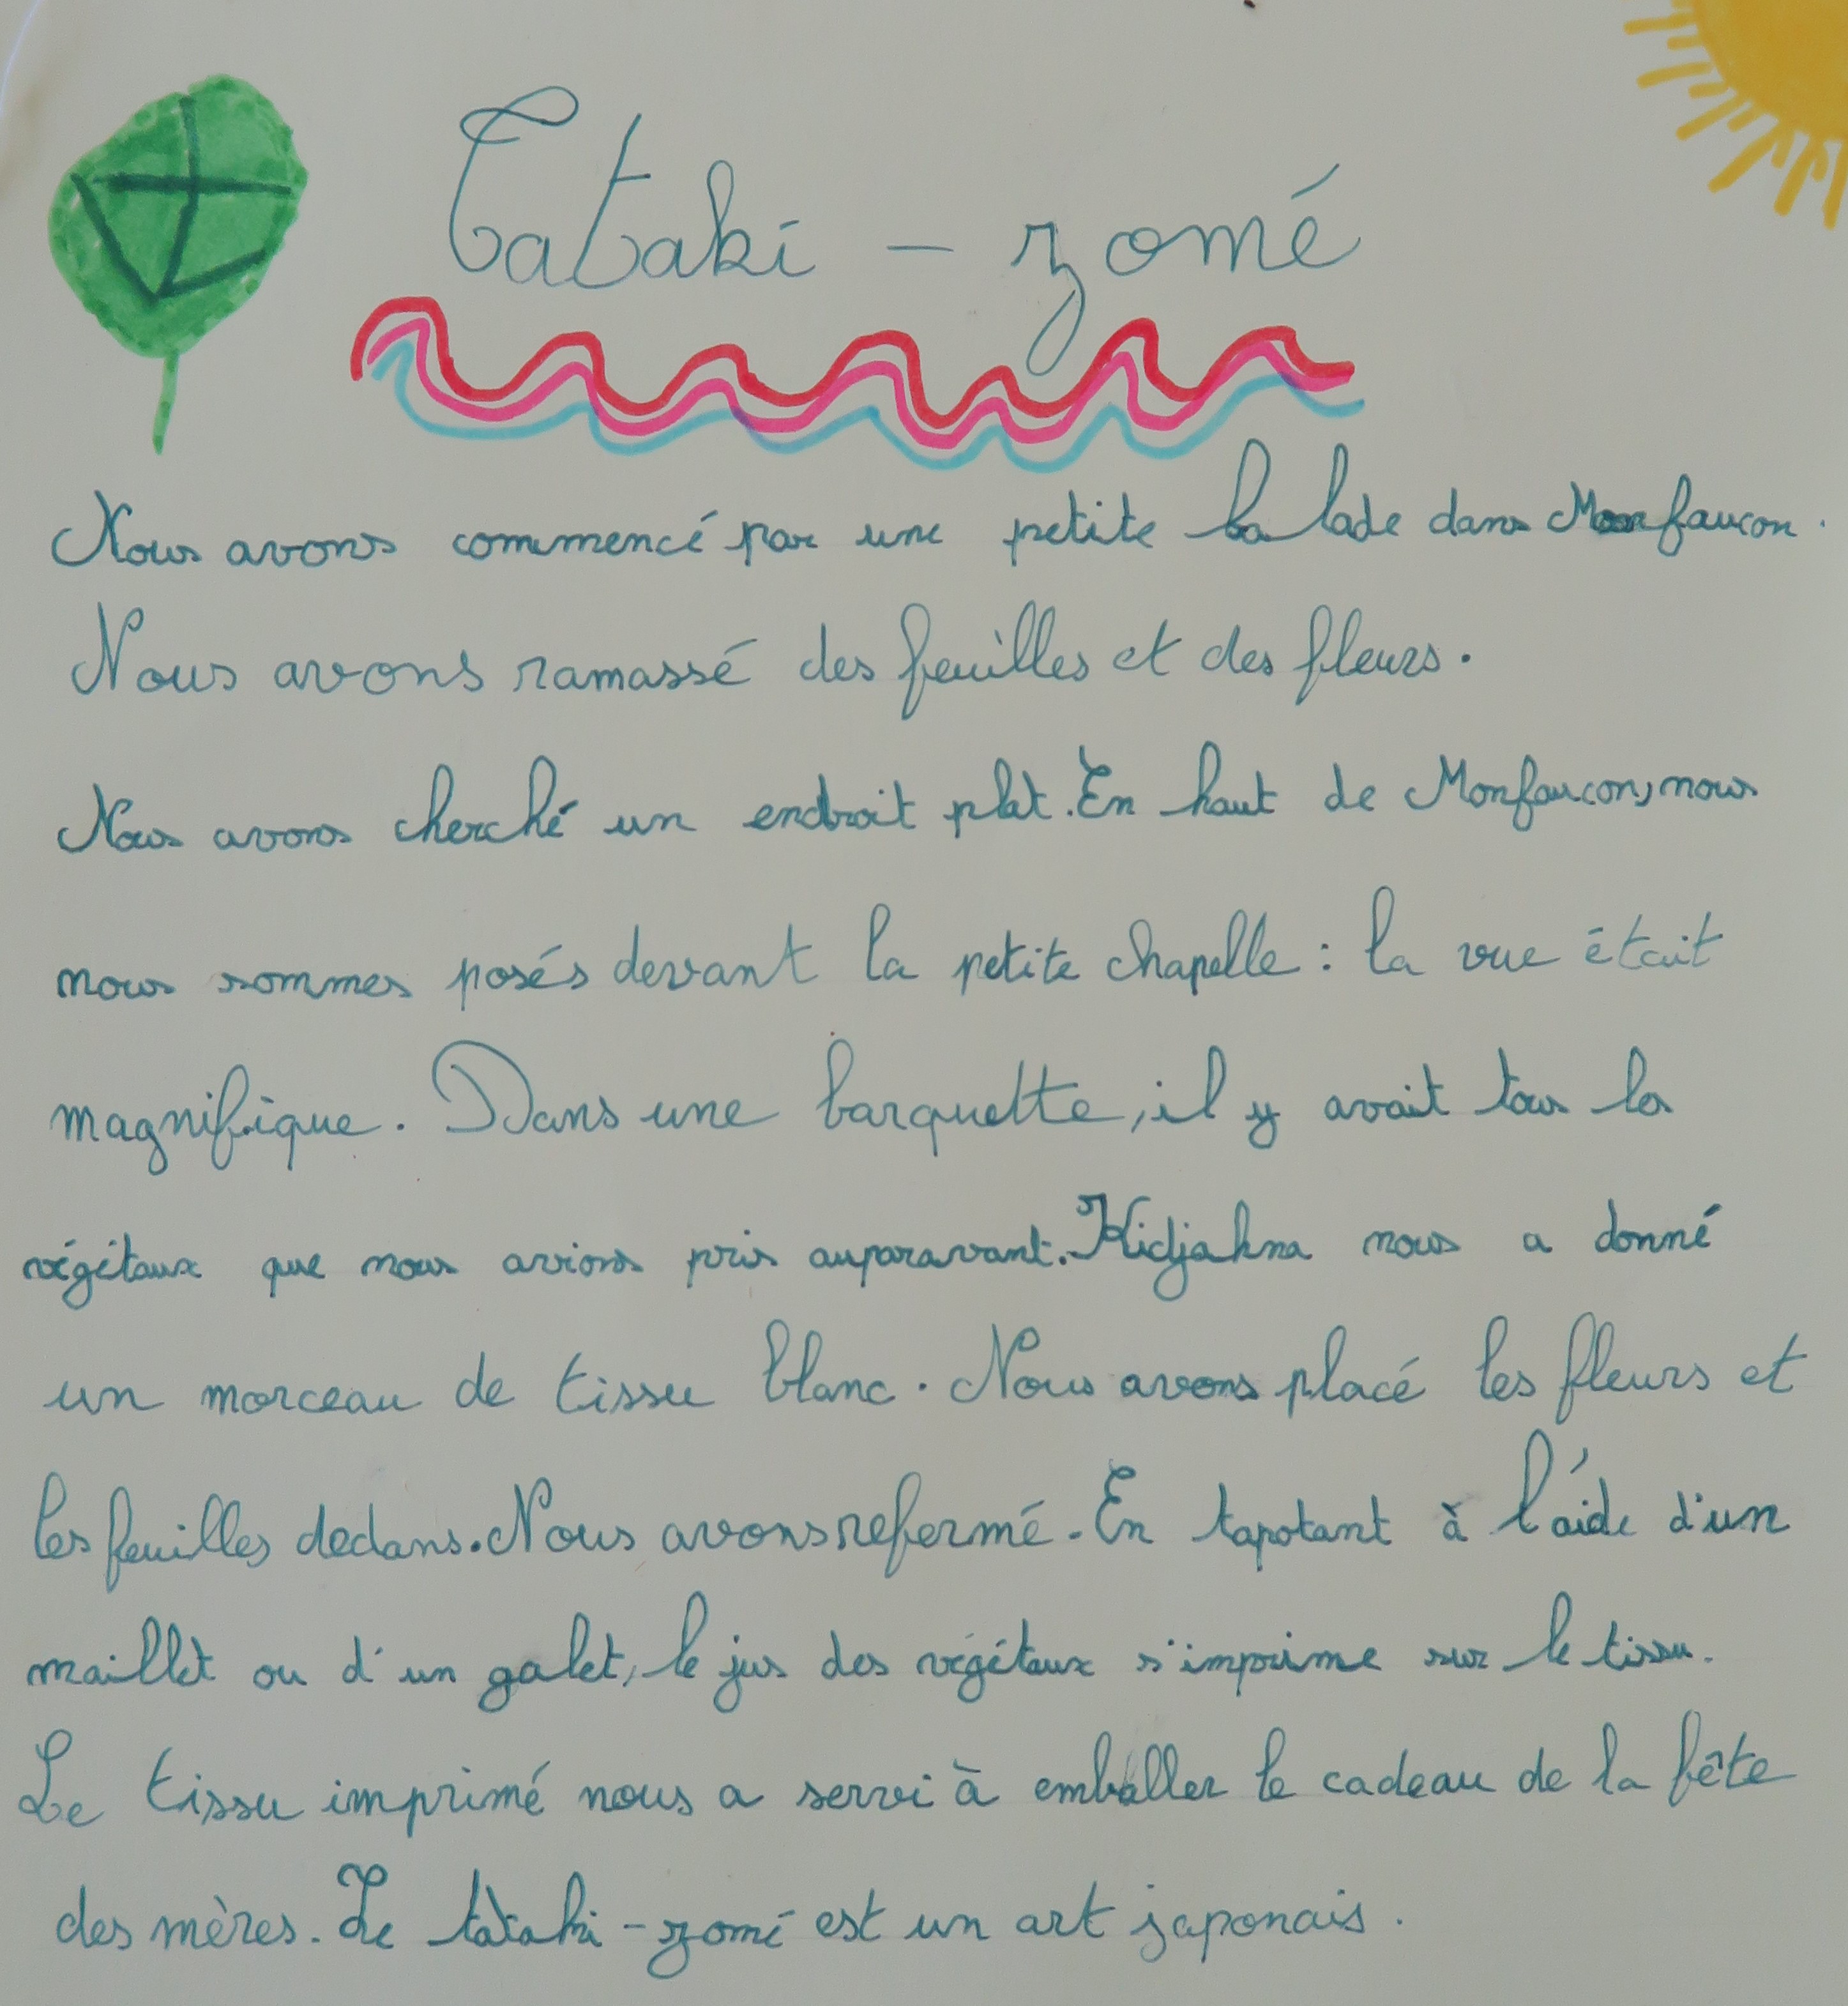 Tataki - zomé
Nous avons commencé par une petite balade dans Monfaucon.
Nous avons ramassé des feuilles et des fleurs.
Nous avons cherché un endroit plat. En haut de Monfaucon, nous
nous sommes posés devant la petite chapelle : la vue était
magnifique. Dans une barquette, il y avait tous les
végétaux que nous avions pris auparavant. Kidjahna nous a donné
un morceau de tissu blanc. Nous avons placé les fleurs et
les feuilles dedans. Nous avons refermé. En tapotant à l'aide d'un
maillet ou d'un galet, le jus des végétaux s'imprime sur le tissu.
Le tissu imprimé nous a servi à emballer le cadeau de la fête
des mères. Le tataki-zomé est un art japonais.